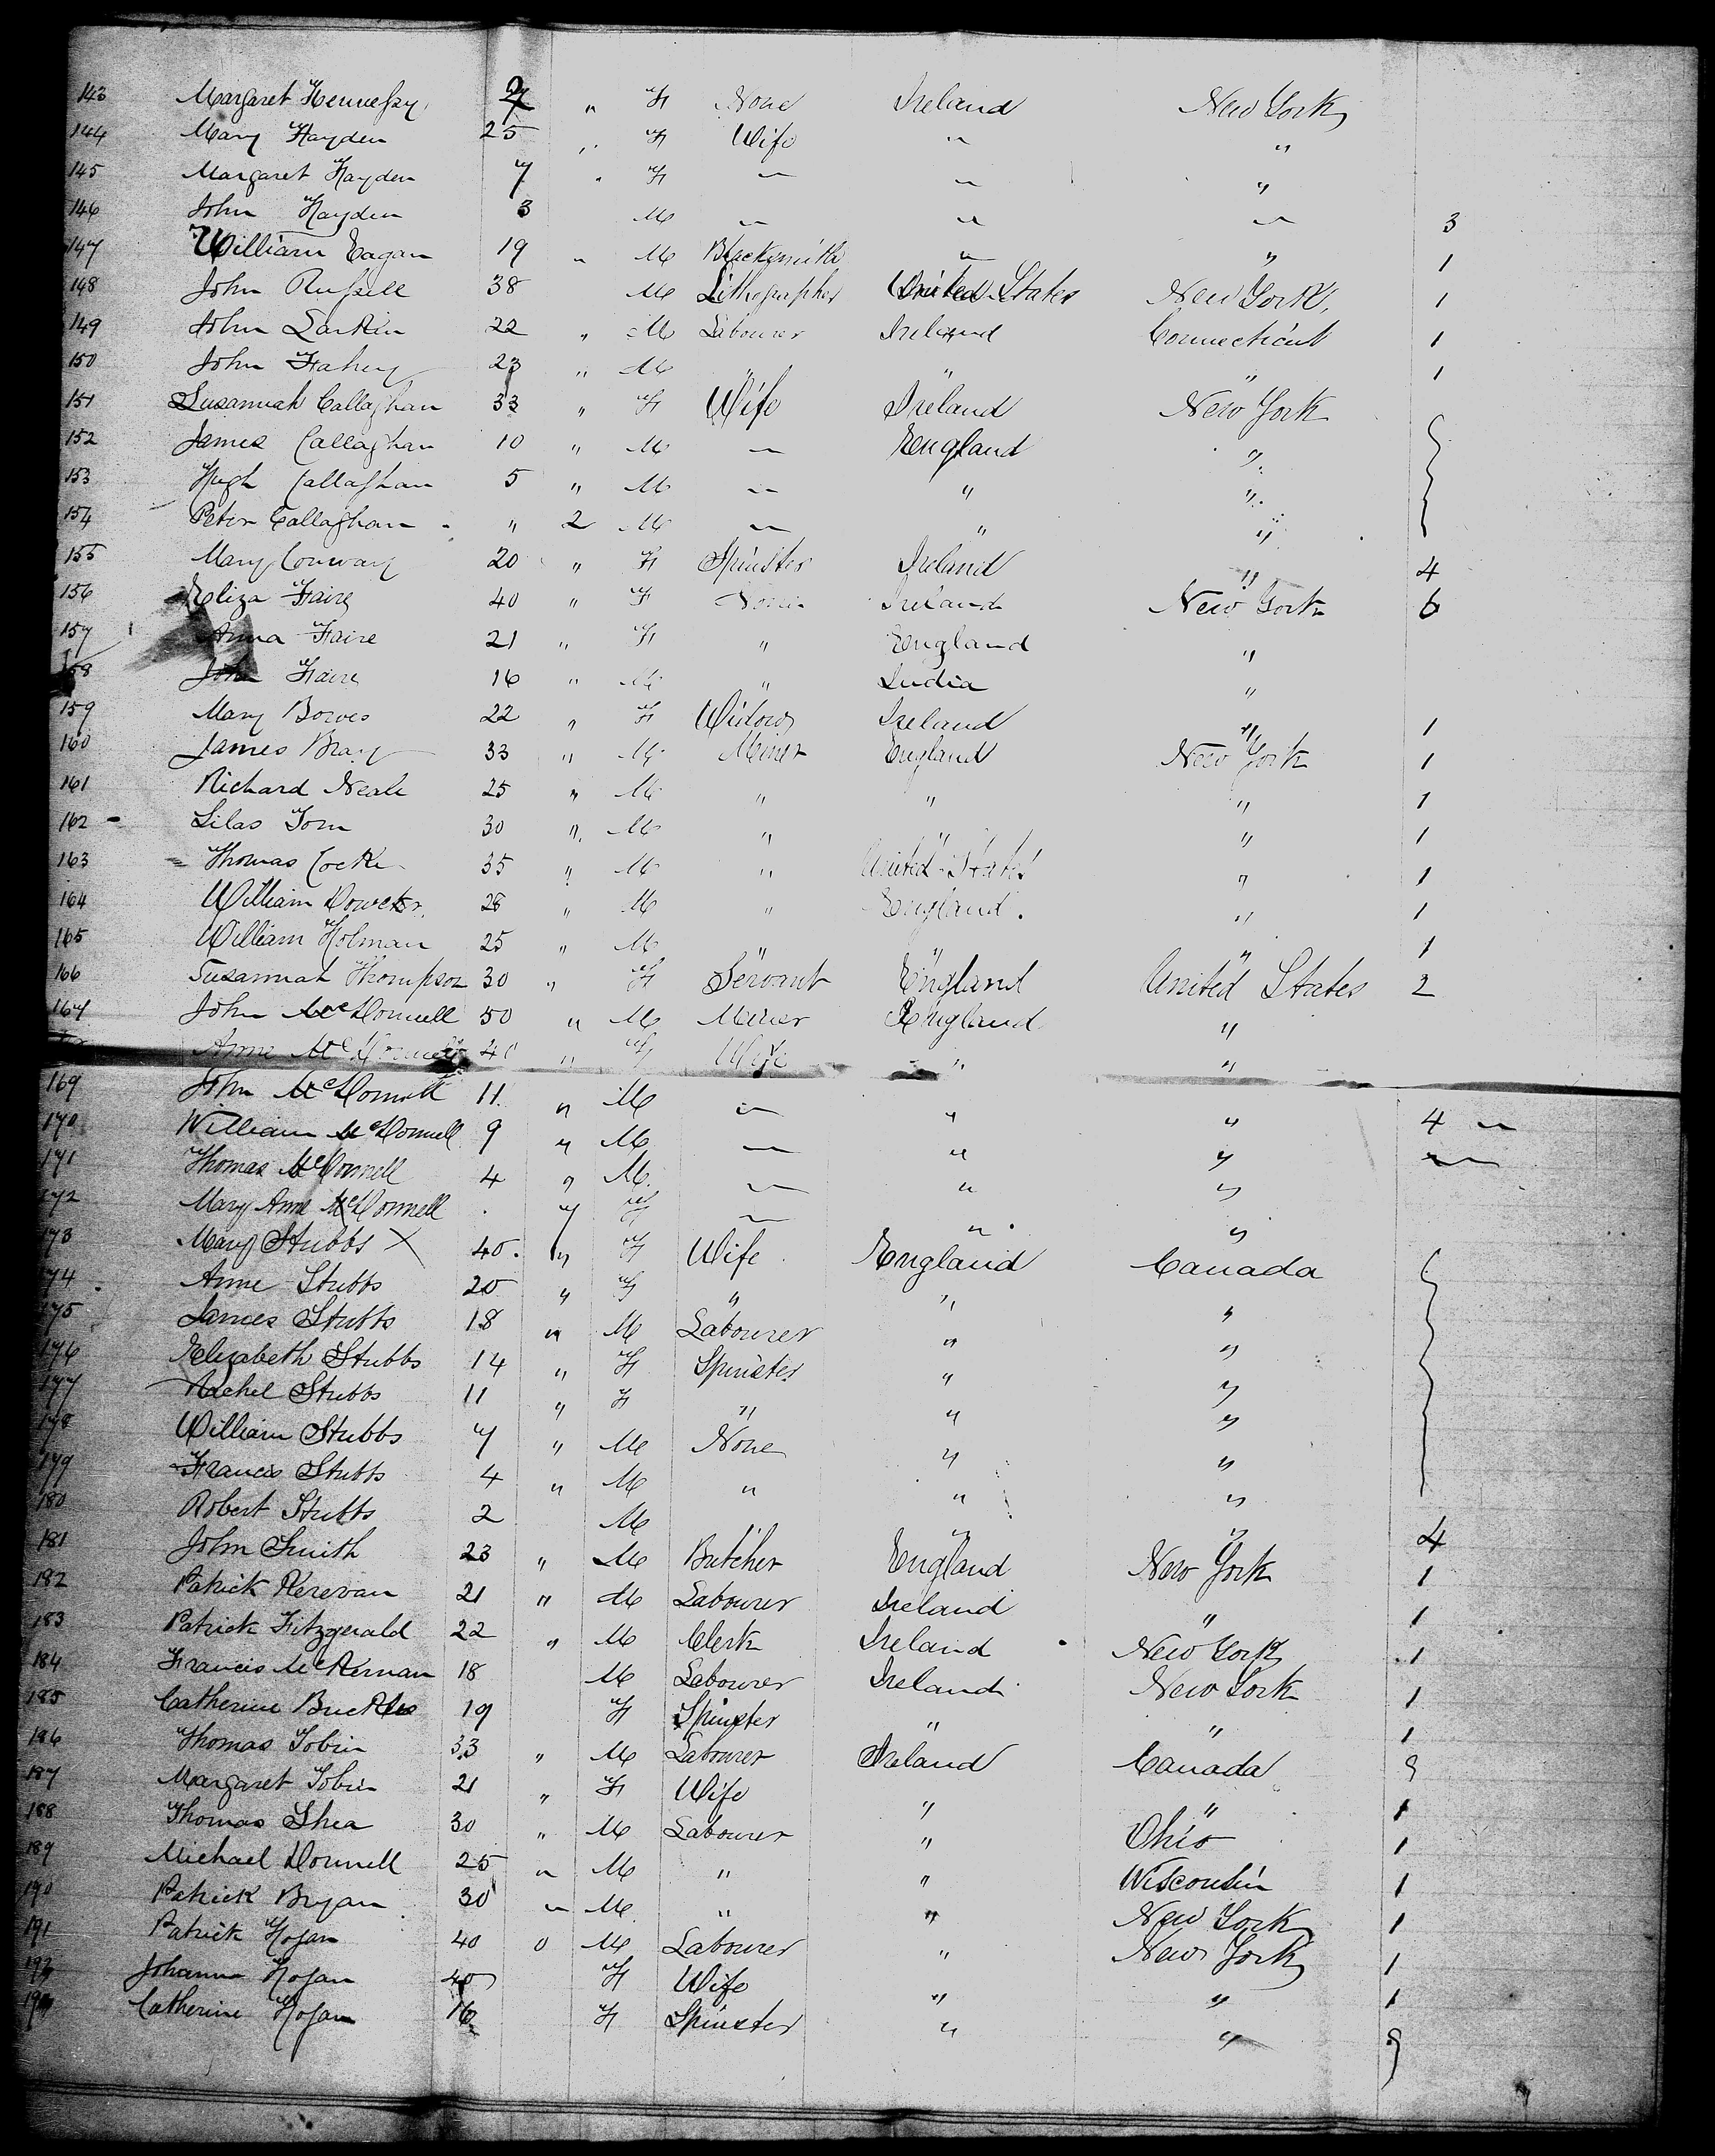 143 Margaret Hennessy 7 " F None Ireland New York
144 Mary Hayden 25 " F Wife " "
145 Margaret Hayden 7 " F " " "
146 John Hayden 3 M " " " 3
147 William Eagan 19 " M Blacksmith " " 1
148 John Russell 38 M Lithographer United States New York 1
149 John Larkin 22 " M Labourer Ireland Connecticut 1
150 John Fahey 23 " M " " " 1
151 Susannah Callaghan 33 " F Wife Ireland New York
152 James Callaghan 10 " M " England "
153 Hugh Callaghan 5 " M " " "
154 Peter Callaghan " 2 M " " "
155 Mary Conway 20 " F Spinster Ireland " 4
156 Eliza Faire 40 " F None Ireland New York 6
157 Anna Faire 21 " F " England "
158 John Faire 16 " M " India "
159 Mary Bowes 22 " F Widow Ireland " 1
160 James Bray 33 " M Miner England New York 1
161 Richard Neale 25 " M " " " 1
162 Silas Tom 30 " M " " " 1
163 Thomas Cocke 35 " M " United States " 1
164 William 28 " M " England " 1
165 William Holman 25 " M " " " 1
166 Susannah Thompson 30 " F Servant England United States 2
167 John McDonnell 50 " M Miner England "
Anne McDonnell 40 " F Wife " "
169 John McDonnell 11 " M " " "
170 William McDonnell 9 " M " " " 4 "
171 Thomas McDonnell 4 " M " " " "
172 Mary Anne McDonnell 7 F " " "
173 Mary Stubbs X 40 " F Wife England Canada
174 Anne Stubbs 20 " F " " "
175 James Stubbs 18 " M Labourer " "
176 Elizabeth Stubbs 14 " F Spinster " "
177 Rachel Stubbs 11 " F " " "
178 William Stubbs 7 " M None " "
179 Francis Stubbs 4 " M " " "
180 Robert Stubbs 2 M " " " 4
181 John Smith 23 " M Butcher England New York 1
182 Patrick Kerevan 21 " M Labourer Ireland " 1
183 Patrick Fitzgerald 22 " M Clerk Ireland New York 1
184 Francis McKernan 18 M Labourer Ireland New York 1
185 Catherine 19 F Spinster " " 1
186 Thomas Tobin 33 " M Labourer Ireland Canada
187 Margaret Tobin 21 " F Wife " " 1
188 Thomas Shea 30 " M Labourer " Ohio 1
189 Michael Donnell 25 " M " " Wisconsin 1
190 Patrick Bryan 30 " M " " New York 1
191 Patrick Hogan 40 " M Labourer " New York 1
192 Johanna Hogan 40 F Wife " " 1
193 Catherine Hogan 16 F Spinster " "